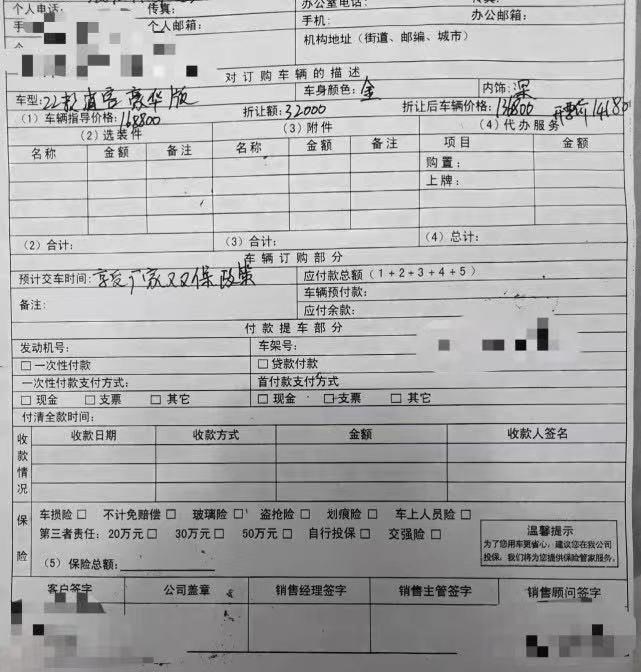 个人电话: 传真:
办公室电话: 传真:
手 个人邮箱:
手机: 办公邮箱:
机构地址（街道、邮编、城市）
对订购车辆的描述
车型: 22款 豪华版 车身颜色: 金 内饰: 深
（1）车辆指导价格: 168800 折让额: 32000 折让后车辆价格: 136800
（2）选装件 （3）附件 （4）代办服务
名称 金额 备注 名称 金额 备注 项目 金额
购置:
上牌:
（2）合计: （3）合计: （4）总计:
车辆订购部分
预计交车时间: 享受厂家双保政策 应付款总额（1+2+3+4+5）
车辆预付款:
备注: 应付余款:
付款提车部分
发动机号: 车架号:
□一次性付款 □贷款付款
一次性付款支付方式: 首付款支付方式
□现金 □支票 □其它 □现金 □支票 □其它
付清全款时间:
收款情况 收款日期 收款方式 金额 收款人签名
保险 车损险□ 不计免赔偿□ 玻璃险□ 盗抢险□ 划痕险□ 车上人员险□
第三者责任: 20万元□ 30万元□ 50万元□ 自行投保□ 交强险□
（5）保险总额:
温馨提示
为了您用车更省心，建议您在我公司
投保，我们将为您提供保险管家服务。
客户签字 公司盖章 销售经理签字 销售主管签字 销售顾问签字